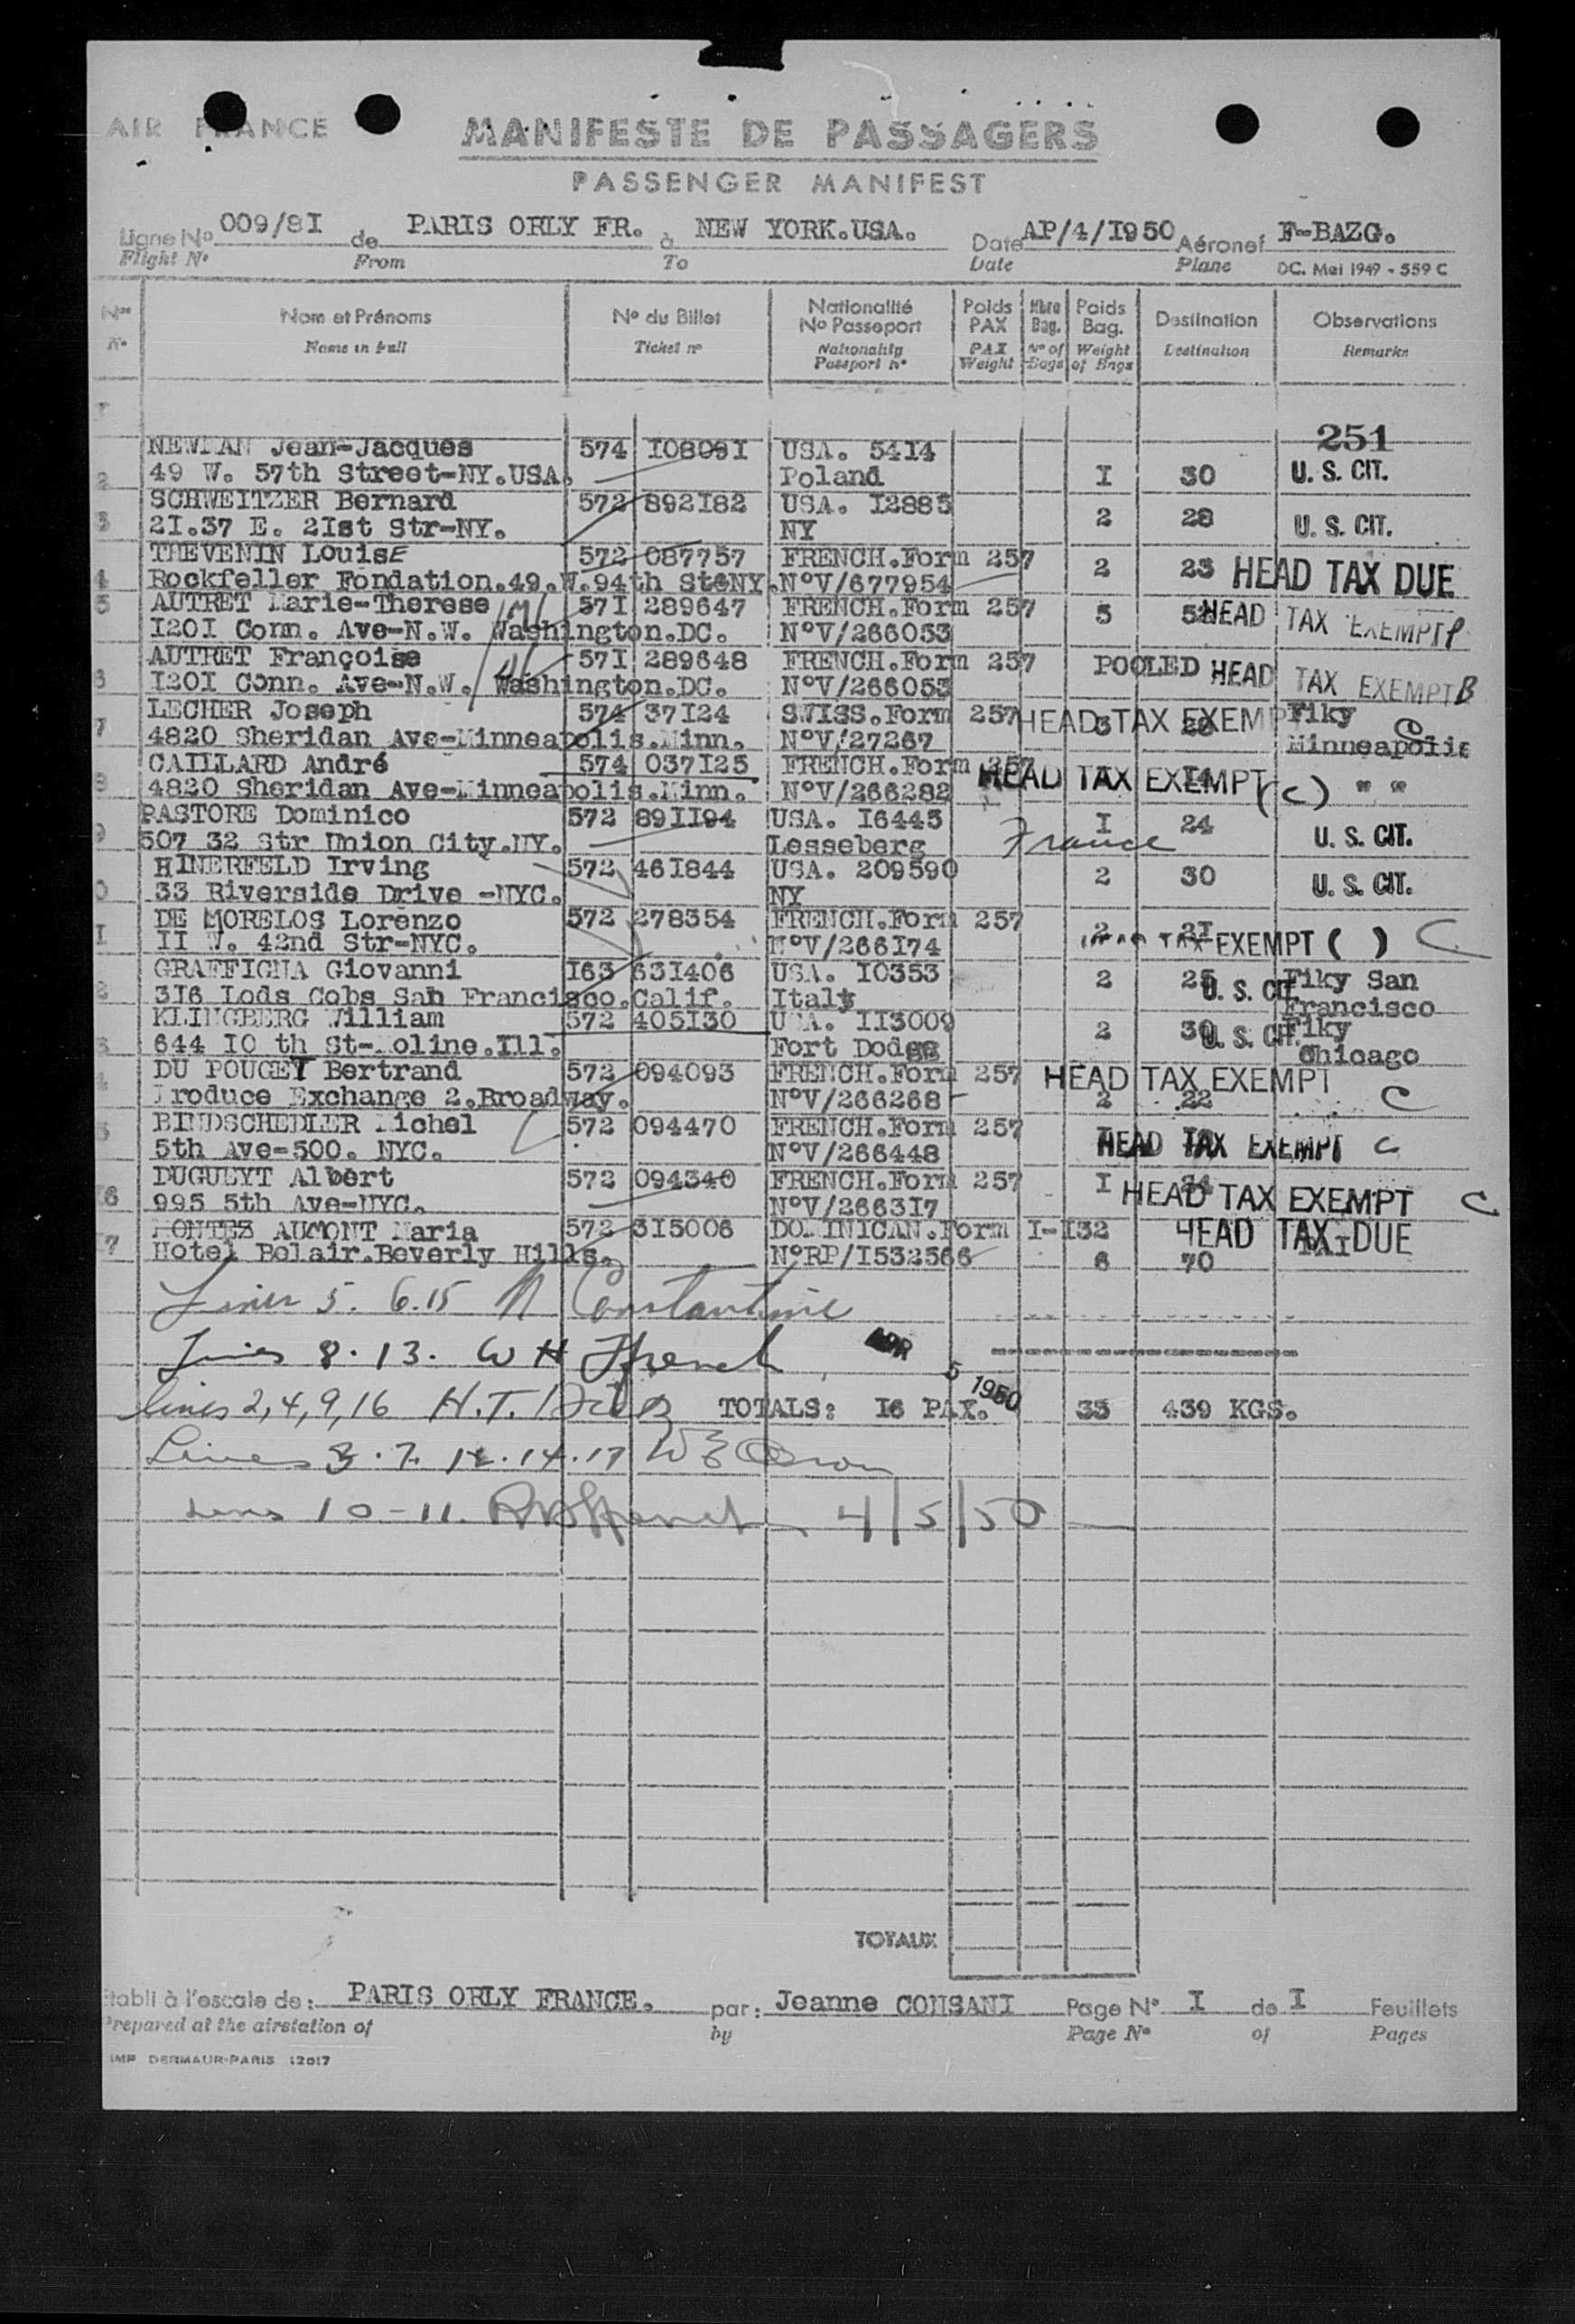 AIR FRANCE
MANIFESTE DE PASSAGERS
PASSENGER MANIFEST
Ligne No 009/8I de PARIS ORLY FR. à NEW YORK.USA. Date AP/4/I950 Aéronef F-BAZG.
Flight No From To Date Plane DC. Mai 1949 - 559 C
Nos Nom et Prénoms No du Billet Nationalité No Passeport Poids PAX Nbre Bag. Poids Bag. Destination Observations
No Name in Full Ticket no Nationality Passport No PAX Weight No of Bags Weight of Bags Destination Remarks
251
NEWMAN Jean-Jacques 574 I0809I USA. 54I4
49 W. 57th Street-NY.USA. Poland I 30 U. S. CIT.
SCHWEITZER Bernard 572 892I82 USA. I2885
2I.37 E. 2Ist Str-NY. NY 2 28 U. S. CIT.
THEVENIN LouisE 572 087757 FRENCH.Form 257
Rockfeller Fondation.49.W.94th SteNY. NoV/677954 2 23 HEAD TAX DUE
AUTRET Marie-Therese 57I 289647 FRENCH.Form 257
I20I Conn. Ave-N.W. Washington.DC. NoV/266053 5 HEAD TAX EXEMPT
AUTRET Françoise 57I 289648 FRENCH.Form 257 POOLED HEAD TAX EXEMPT B
I20I Conn. Ave-N.W. Washington.DC. NoV/266053
LECHER Joseph 574 37I24 SWISS.Form 257 HEAD TAX EXEMPT Fiky C
4820 Sheridan Ave-Minneapolis.Minn. NoV/27267 Minneapolis
CAILLARD André 574 037I25 FRENCH.Form 257 HEAD TAX EXEMPT (C) " "
4820 Sheridan Ave-Minneapolis.Minn. NoV/266282
PASTORE Dominico 572 89II94 USA. I6445 I 24
507 32 Str Union City.NY. Lesseberg France U. S. CIT.
HINERFELD Irving 572 46I844 USA. 209590
33 Riverside Drive -NYC. NY 2 30 U. S. CIT.
DE MORELOS Lorenzo 572 278354 FRENCH.Form 257
II W. 42nd Str-NYC. NoV/266I74 2 2I TAX EXEMPT ( ) C
GRAFFIGNA Giovanni I63 63I406 USA. I0353 2 25 U. S. CIT. Fiky San
3I6 Lods Cobs San Francisco.Calif. Italy Francisco
KLINGBERG William 572 405I30 USA. II3009 2 30 U. S. CIT. Fiky
644 I0 th St-Moline.Ill. Fort Dodge Chicago
DU POUGET Bertrand 572 094093 FRENCH.Form 257 HEAD TAX EXEMPT
Produce Exchange 2.Broadway. NoV/266268 2 22 C
BINDSCHEDLER Michel 572 094470 FRENCH.Form 257
5th Ave-500. NYC. NoV/266448 HEAD TAX EXEMPT C
DUGUEYT Albert 572 094340 FRENCH.Form 257 I 24
995 5th Ave-NYC. NoV/2663I7 HEAD TAX EXEMPT C
MONTEZ AUMONT Maria 572 3I5006 DOMINICAN.Form I-I32 HEAD TAX DUE
Hotel Belair.Beverly Hills. NoRP/I532566 6 70
Lines 5. 6.15 N Constantine
Lines 8.13. W H Ffrench
APR 5 1950
lines 2,4,9,16 H.T. TOTALS: I6 PAX. 35 439 KGS.
Lines 3.7. 12.14.17
Lines 10-11. 4/5/50
TOTAUX
Etabli à l'escale de: PARIS ORLY FRANCE. par: Jeanne CONSANI Page No I de I Feuillets
Prepared at the airstation of by Page No of Pages
IMP DERMAUR-PARIS 12017